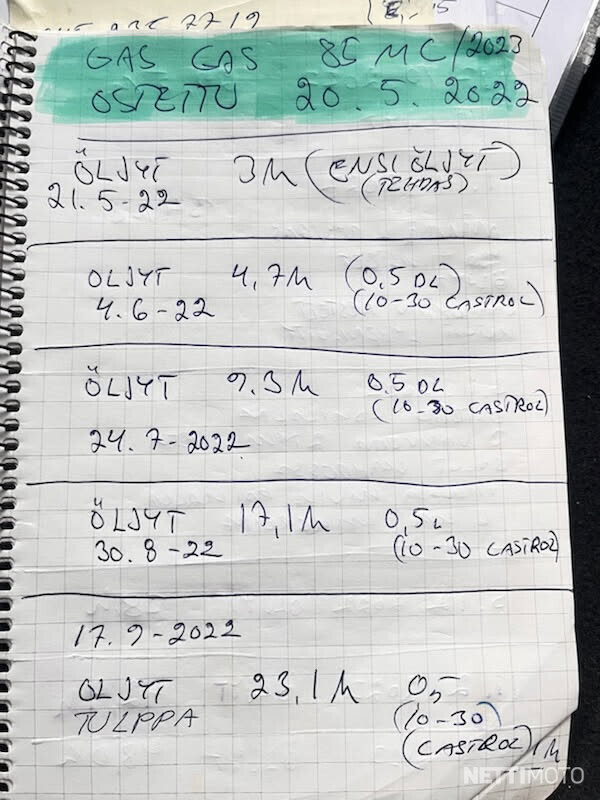 GAS GAS 85 MC/2023
OSTETTU 20.5.2022
ÖLJYT 3H (ENSIÖLJYT)
21.5-22 (TEHDAS)
OLJYT 4,7H (0,5 DL)
4.6-22 (10-30 CASTROL)
ÖLJYT 9.3H 0.5 DL
(10-30 CASTROL)
24.7-2022
ÖLJYT 17,1H 0,5L
30.8-22 (10-30 CASTROL)
17.9-2022
OLJYT 23,1H 0,5
TULPPA (10-30)
(CASTROL)
NETTIMOTO